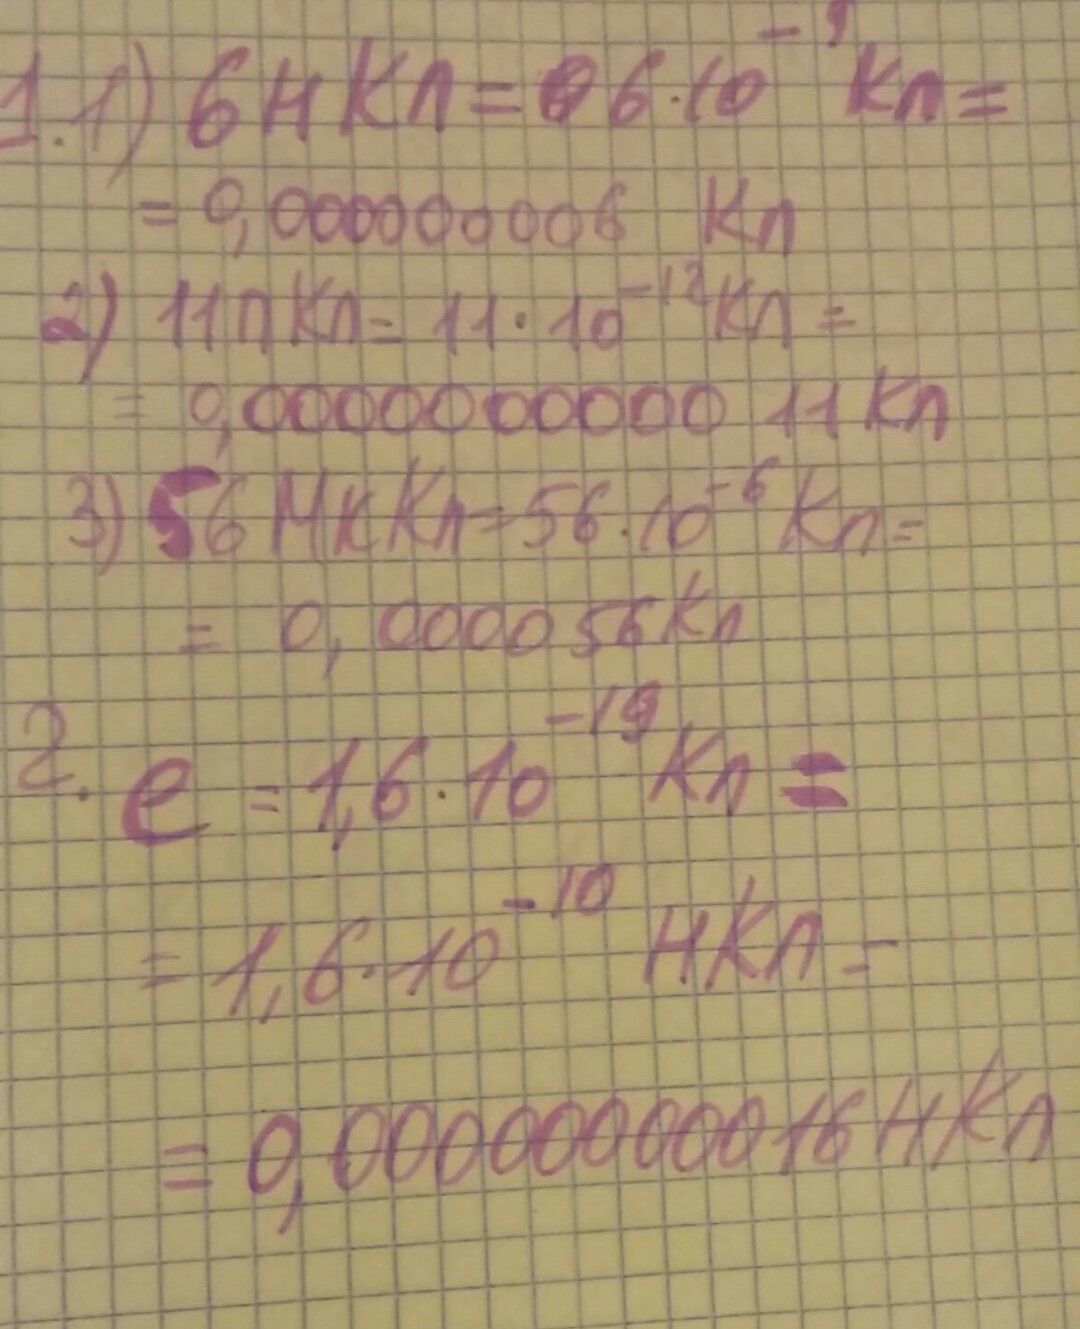 1.1) 6 нКл = 6·10⁻⁹ Кл =
= 0,000000006 Кл
2) 11пКл = 11·10⁻¹² Кл =
= 0,000000000011 Кл
3) 56 мкКл = 56·10⁻⁶ Кл =
= 0,000056 Кл
2. e = 1,6·10⁻¹⁹ Кл =
= 1,6·10⁻¹⁰ нКл =
= 0,00000000016 нКл